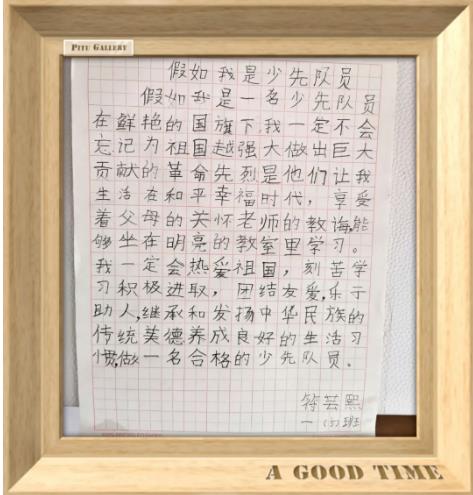 PITU GALLERY
假如我是少先队员
假如我是一名少先队员
在鲜艳的国旗下,我一定不会
忘记为祖国越强大做出巨大
贡献的革命先烈是他们让我
生活在和平幸福时代，享受
着父母的关怀老师的教诲,能
够坐在明亮的教室里学习。
我一定会热爱祖国，刻苦学
习积极进取，团结友爱,乐于
助人,继承和发扬中华民族的
传统美德养成良好的生活习
惯,做一名合格的少先队员。
符芸熙
一(5)班
A GOOD TIME